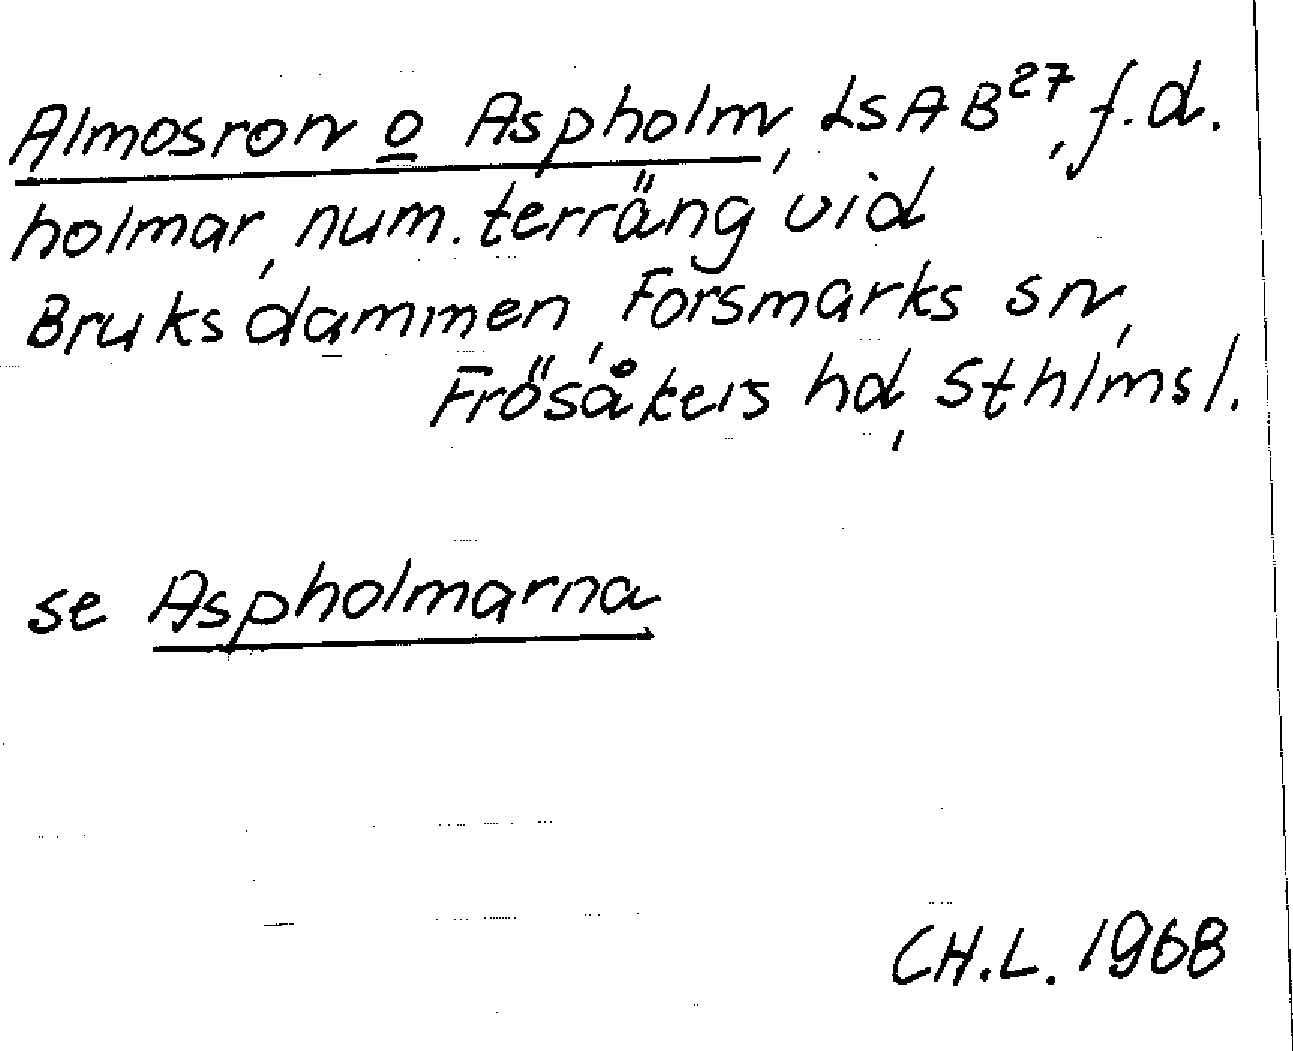 Almosron o Aspholm, LSAB27, f.d.
holmar, num. terräng vid
Bruksdammen, Forsmarks sn,
Frösåkers hd, Sthlmsl.
se Aspholmarna
CH.L. 1968